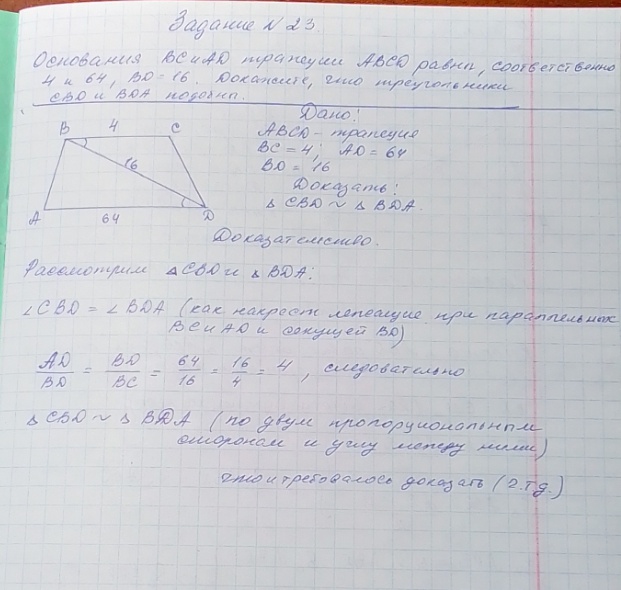 Задание N 23.
Основания BC и AD трапеции ABCD равны, соответственно
4 и 64, BD = 16. Докажите, что треугольники
CBD и BDA подобны.
Дано:
B 4 C
ABCD - трапеция
BC = 4; AD = 64
16
BD = 16
Доказать:
△ CBD ~ △ BDA.
A 64 D
Доказательство.
Рассмотрим △CBD и △ BDA:
∠CBD = ∠BDA (как накрест лежащие при параллельных
BC и AD и секущей BD)
AD/BD = BD/BC = 64/16 = 16/4 = 4, следовательно
△ CBD ~ △ BDA (по двум пропорциональным
сторонам и углу между ними)
что и требовалось доказать (ч.т.д.)